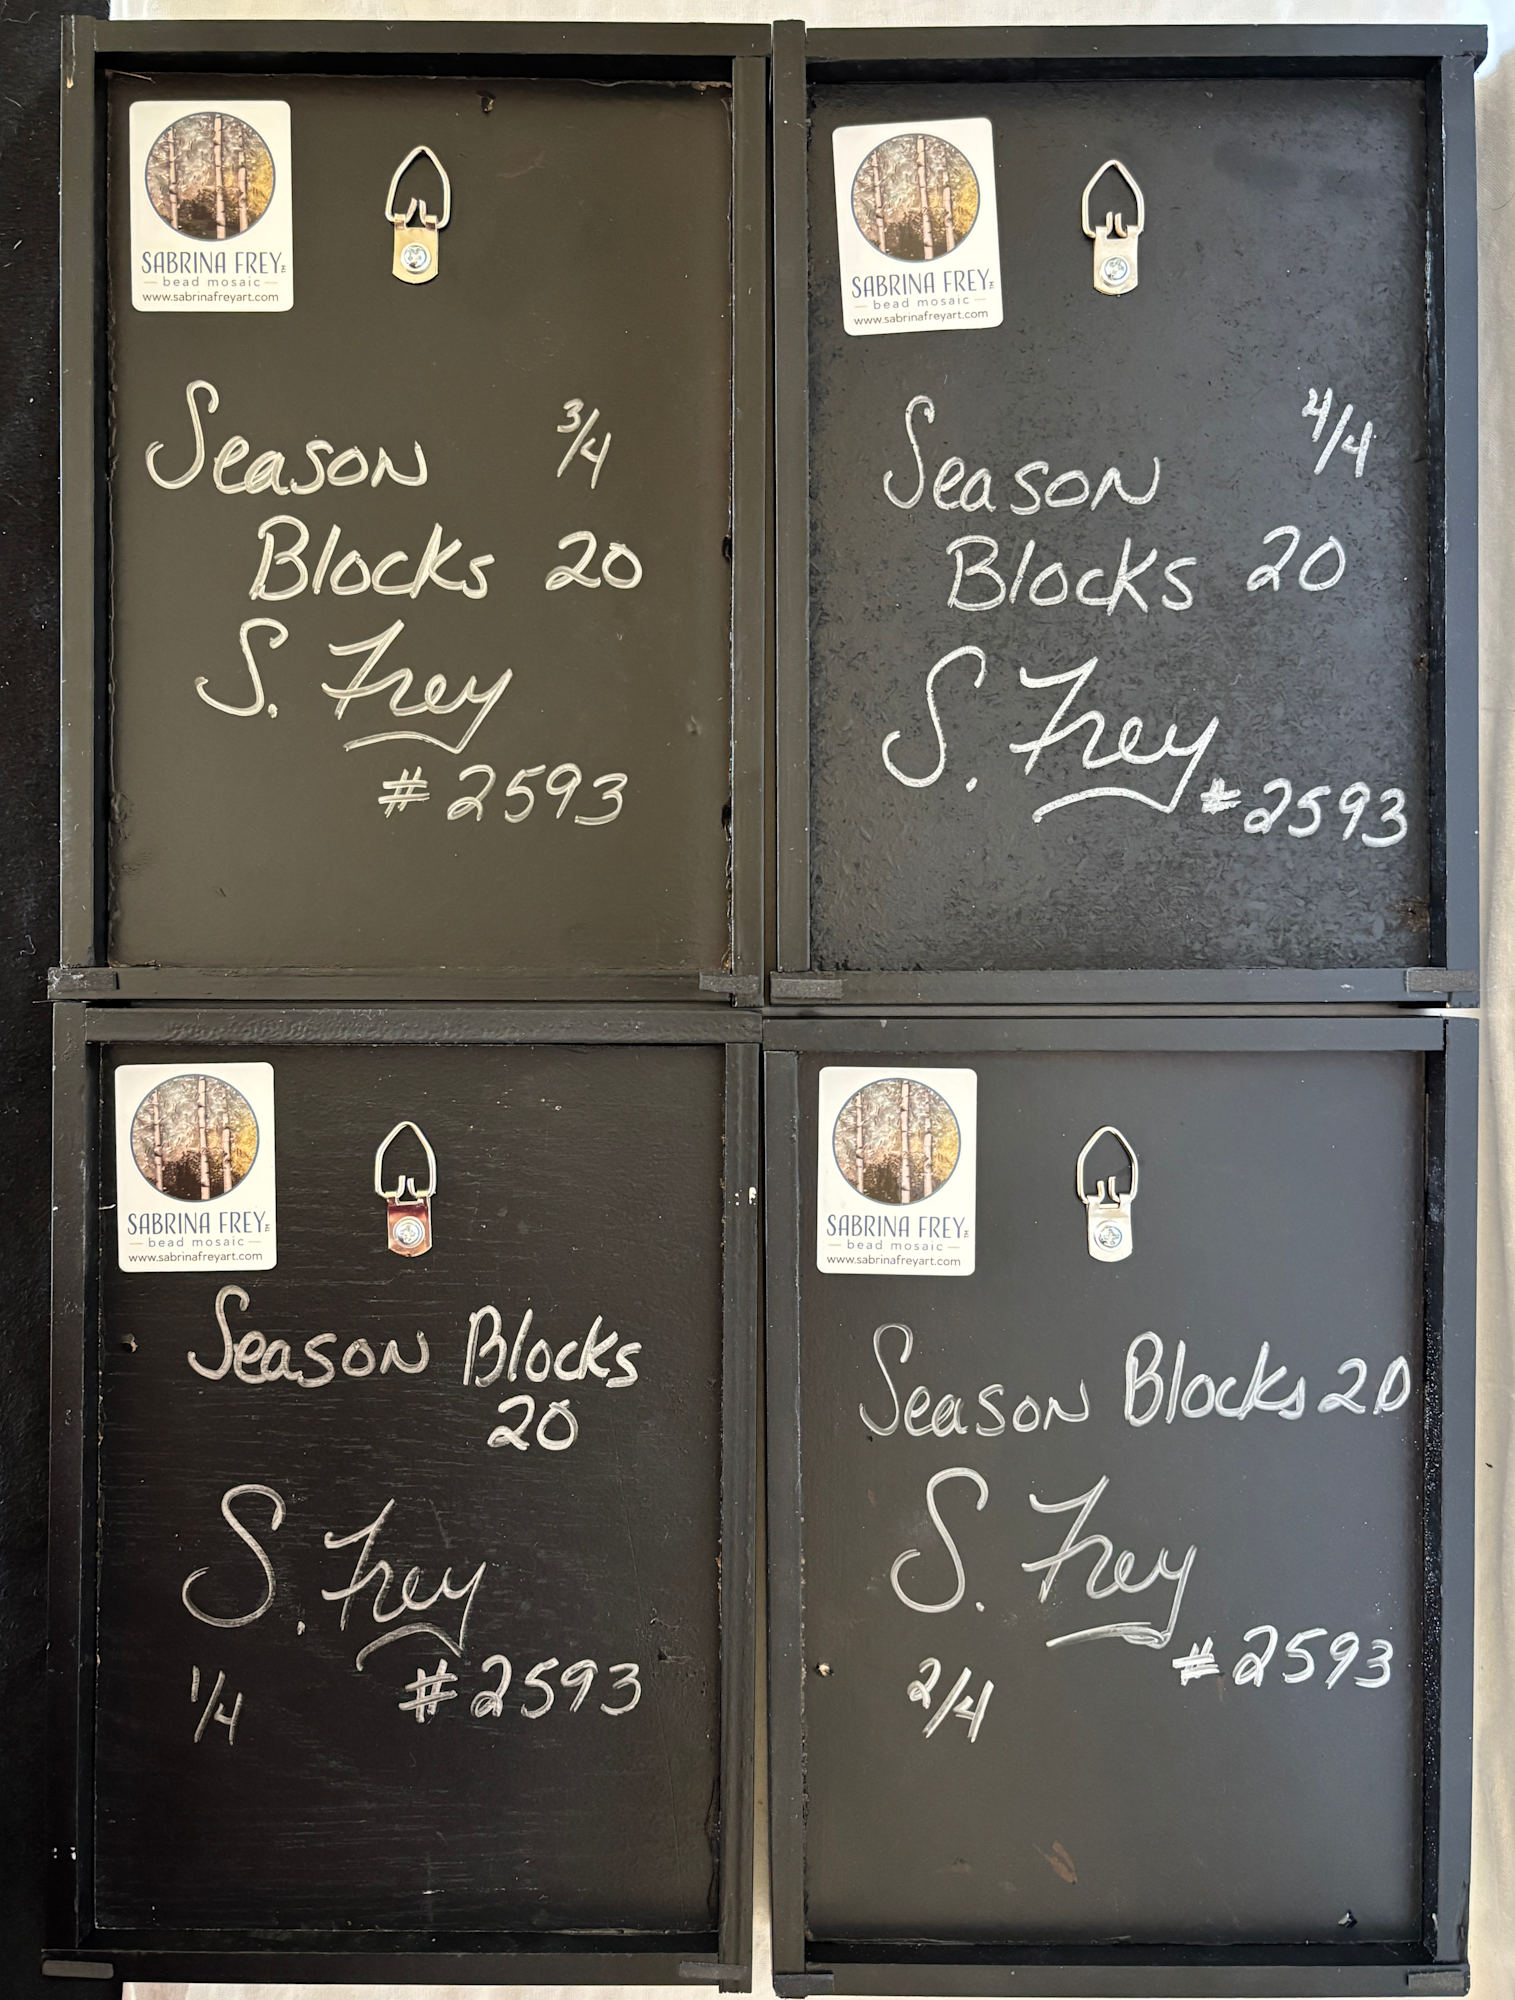 SABRINA FREY™
bead mosaic
www.sabrinafreyart.com
Season 3/4
Blocks 20
S. Frey
#2593
SABRINA FREY™
bead mosaic
www.sabrinafreyart.com
Season 4/4
Blocks 20
S. Frey
#2593
SABRINA FREY™
bead mosaic
www.sabrinafreyart.com
Season Blocks
20
S. Frey
1/4 #2593
SABRINA FREY™
bead mosaic
www.sabrinafreyart.com
Season Blocks 20
S. Frey
#2593
2/4